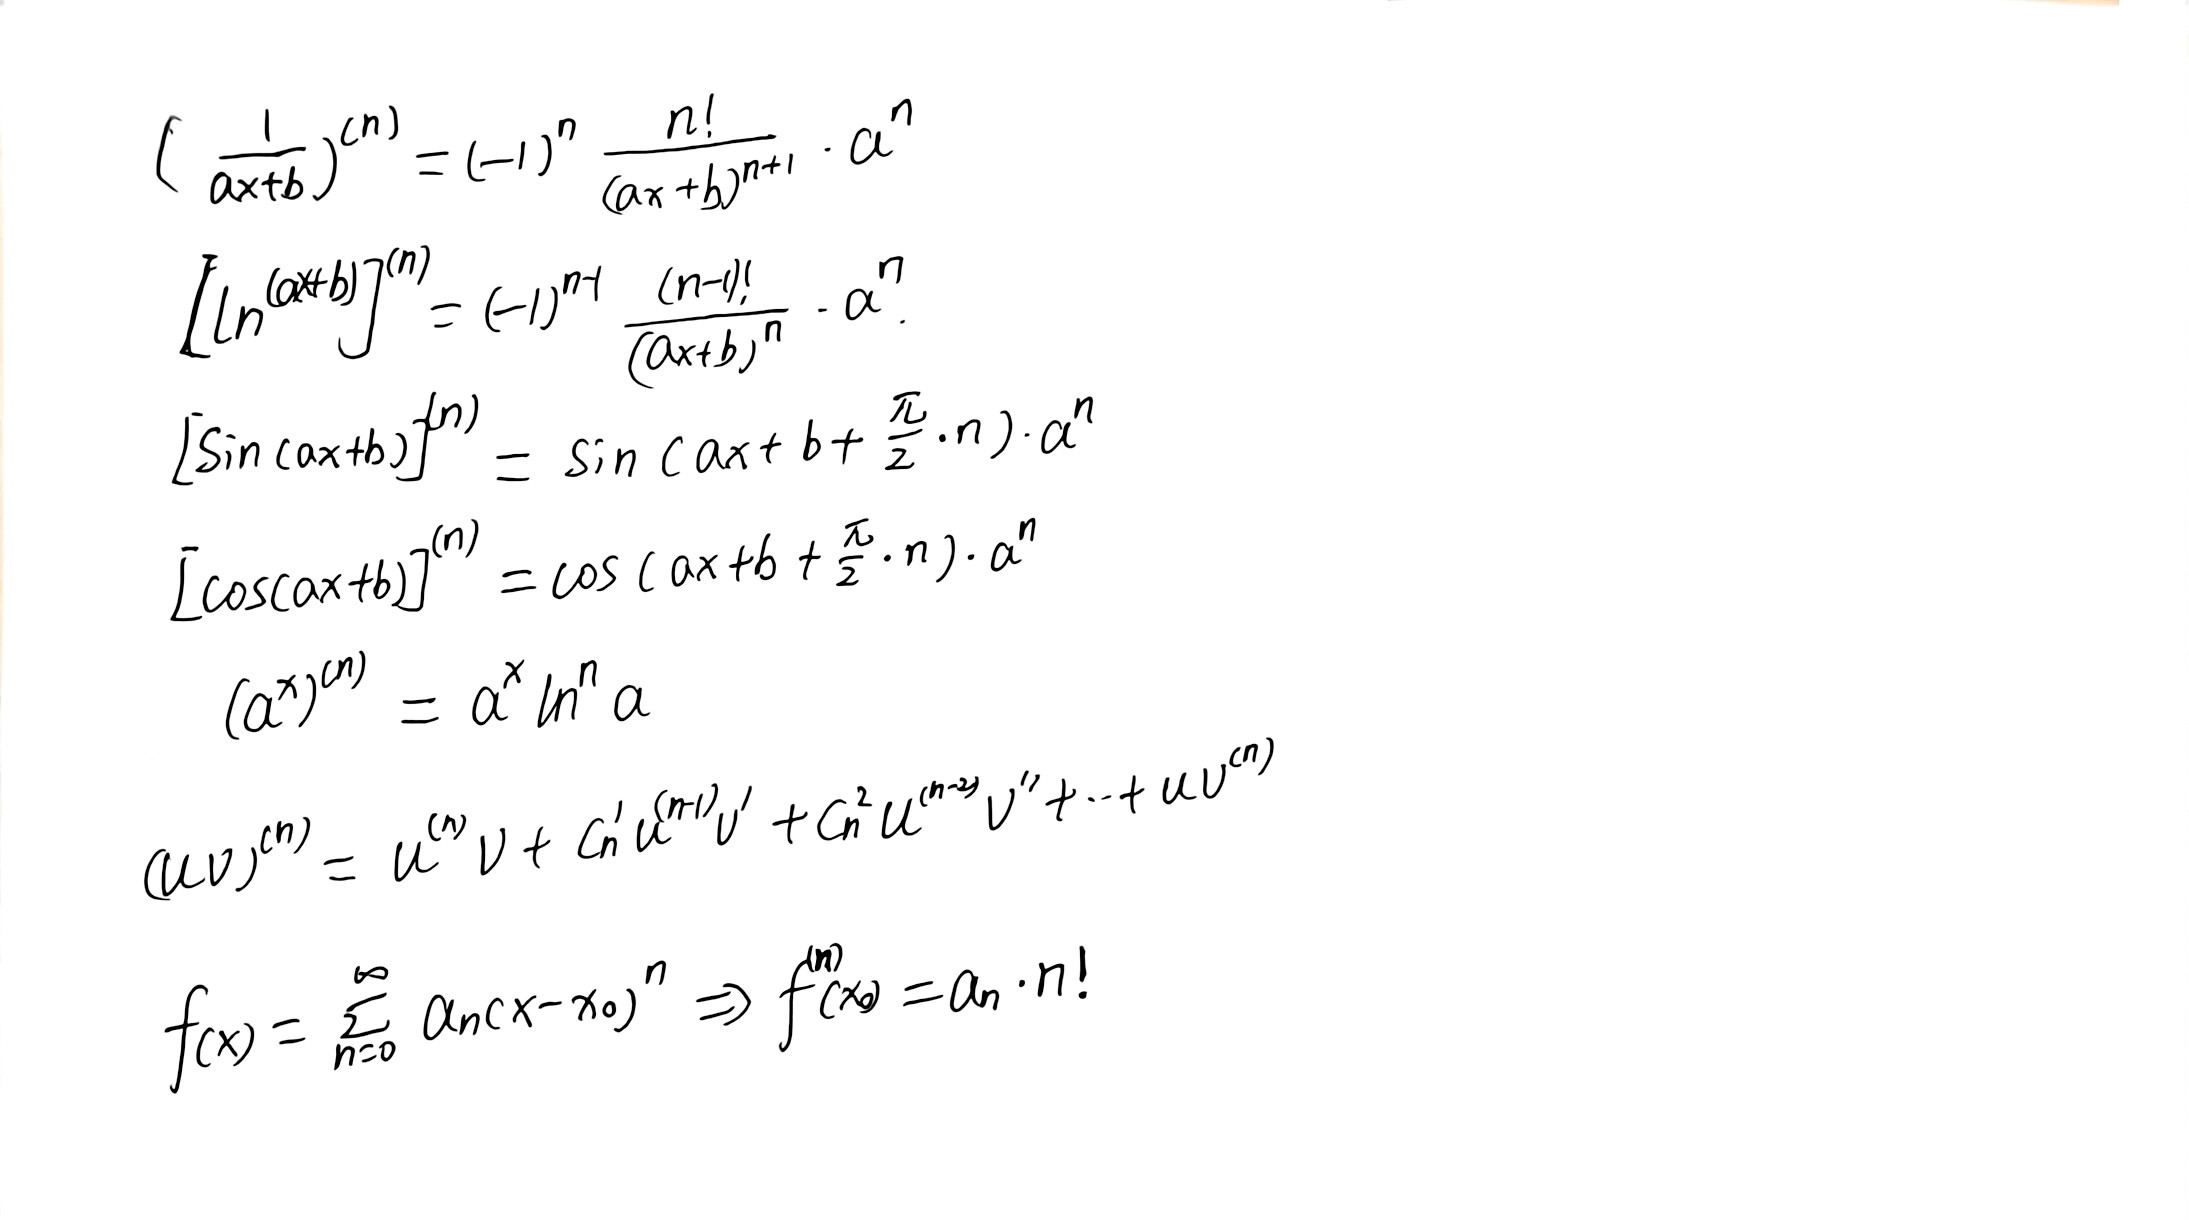 (1/(ax+b))^(n) = (-1)^n n!/(ax+b)^(n+1) · a^n
[ln(ax+b)]^(n) = (-1)^(n-1) (n-1)!/(ax+b)^n · a^n.
[Sin(ax+b)]^(n) = sin(ax+b+π/2·n)·a^n
[cos(ax+b)]^(n) = cos(ax+b+π/2·n)·a^n
(a^x)^(n) = a^x ln^n a
(uv)^(n) = u^(n) v + C_n^1 u^(n-1) v' + C_n^2 u^(n-2) v'' + ··· + u v^(n)
f(x) = ∑_{n=0}^∞ a_n(x-x_0)^n ⇒ f^(n)(x_0) = a_n · n!